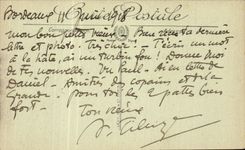 Bordeaux 11
Carte Postale
mon bon petit vieux. Bien reçu ta dernière
lettre et photo. Très chic! - T'écris un mot
à la hâte, ai un turbin fou! Donne moi
de tes nouvelles. Vu Paul. - Ai eu lettre de
Daniel - Amitiés des copains et de la
Grande. - pour toi les 2 pattes bien
fort -
Ton vieux